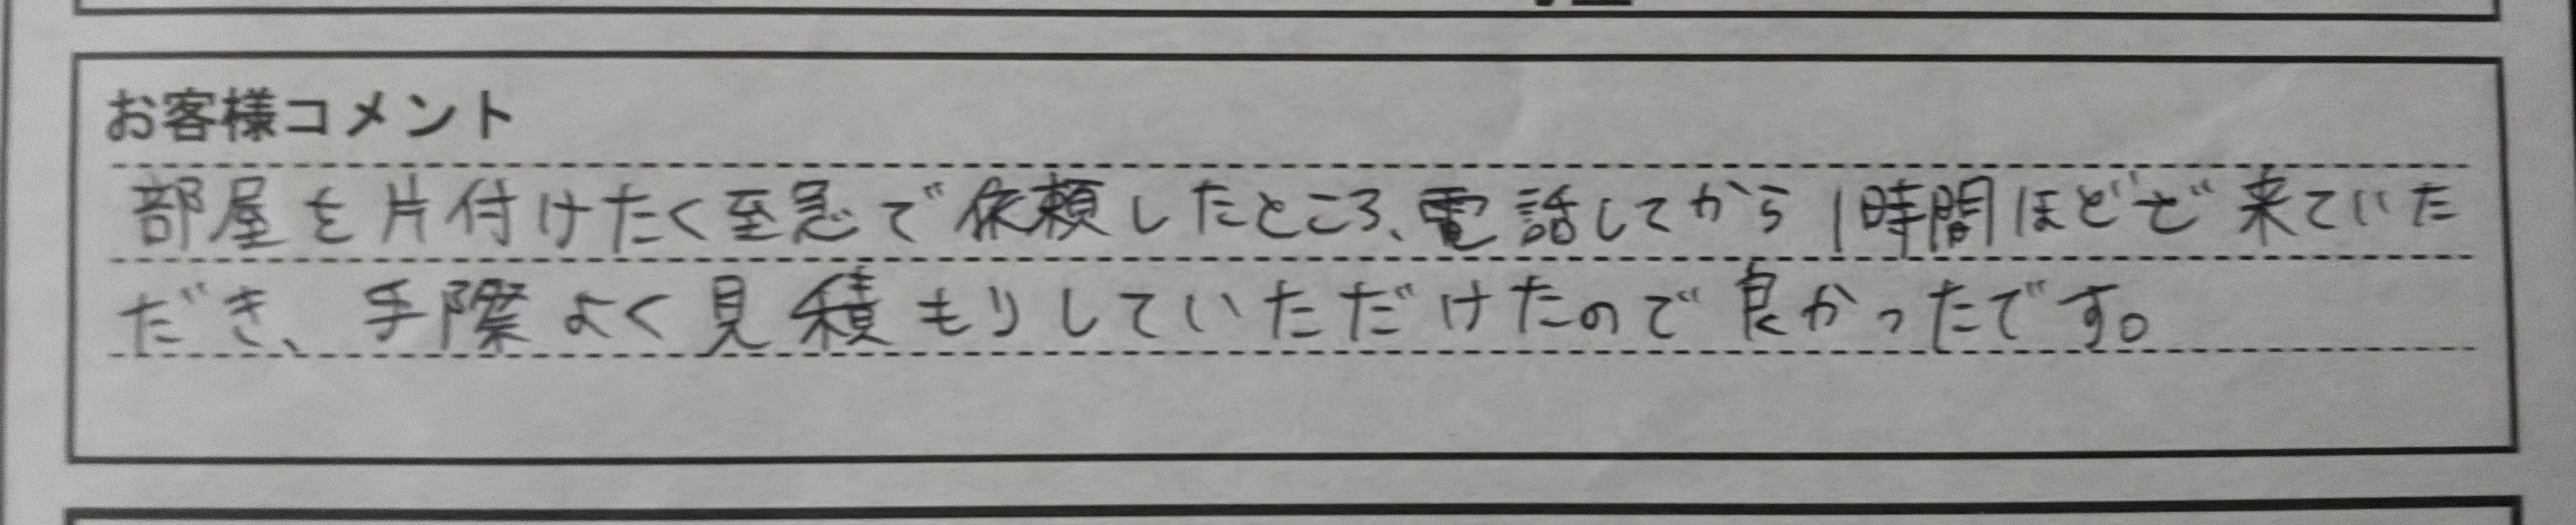 お客様コメント
部屋を片付けたく至急で依頼したところ、電話してから1時間ほどで来ていた
だき、手際よく見積もりしていただけたので良かったです。